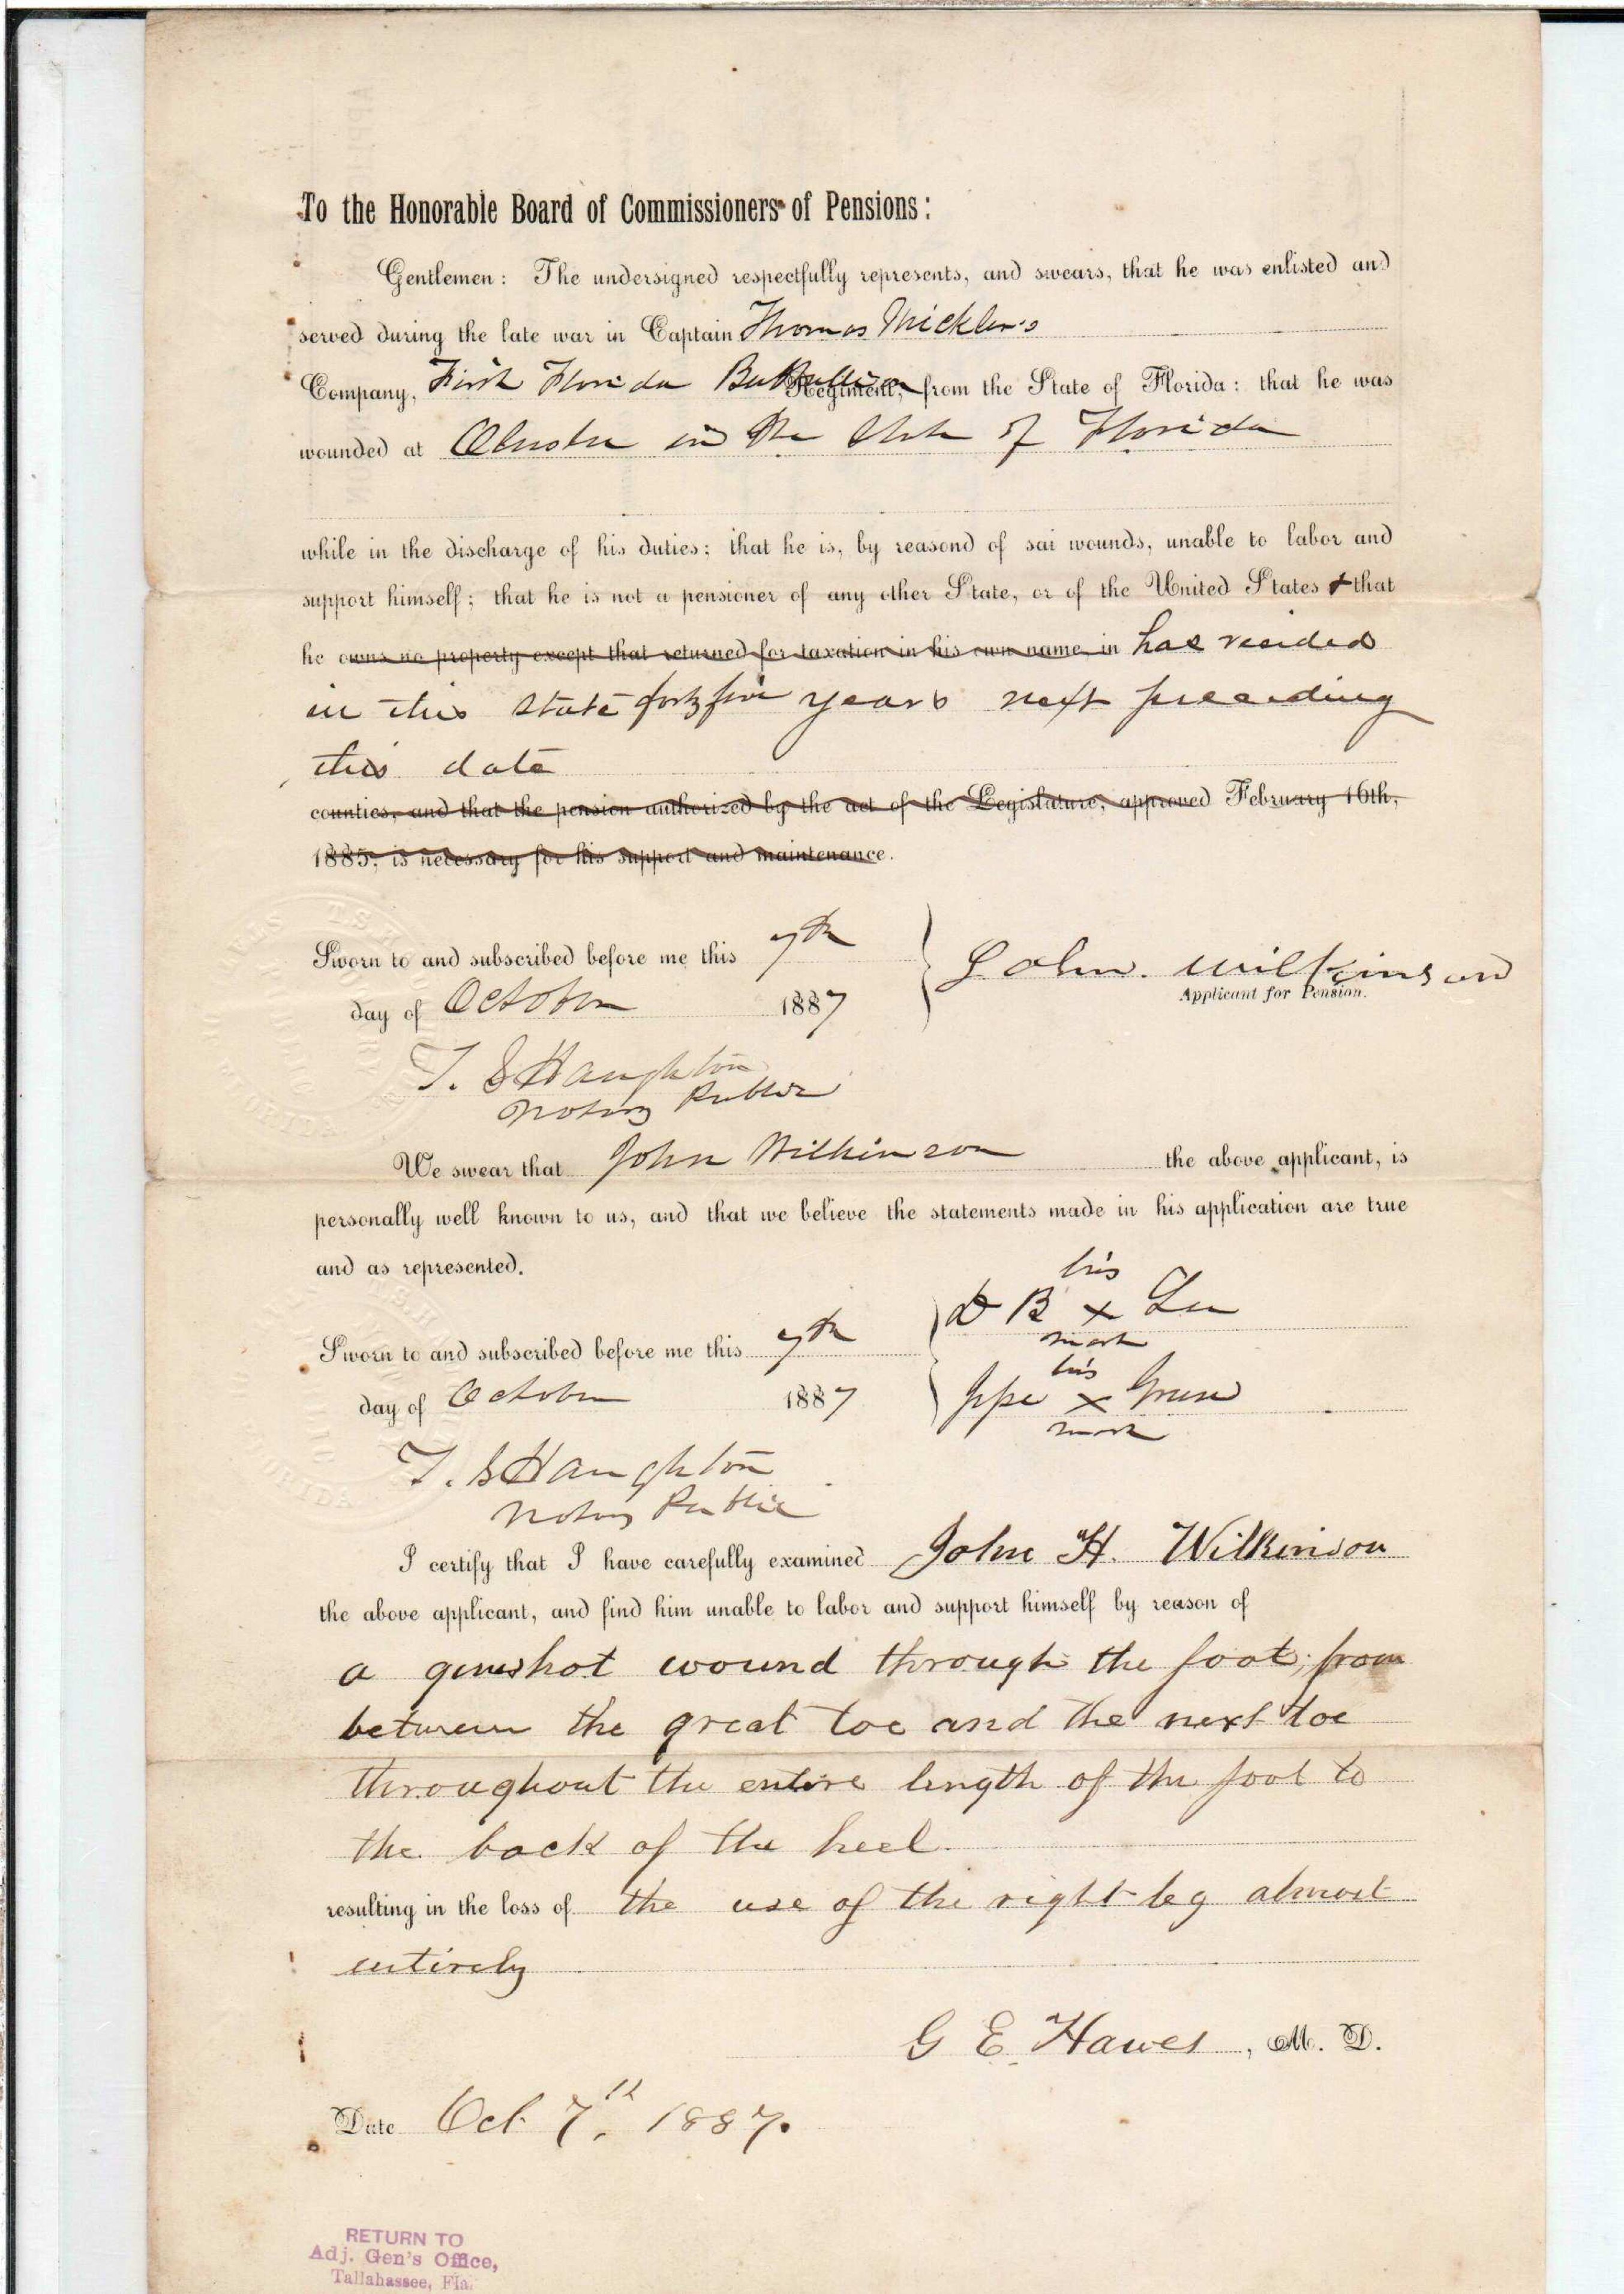 To the Honorable Board of Commissioners of Pensions:
Gentlemen: The undersigned respectfully represents, and swears, that he was enlisted and
served during the late war in Captain Thomas Mickler's
Company, First Florida Battallion Regiment, from the State of Florida: that he was
wounded at Olustee in the State of Florida
while in the discharge of his duties; that he is, by reasond of sai wounds, unable to labor and
support himself; that he is not a pensioner of any other State, or of the United States & that
he owns no property except that returned for taxation in his own name in has resided
in this state forty five years next preceding
this date
counties, and that the pension authorized by the act of the Legislature, approved February 16th,
1885, is necessary for his support and maintenance.
Sworn to and subscribed before me this 7th
day of October 1887
John. Wilkinson
Applicant for Pension.
T. S Haughton
Notary Public
We swear that John Wilkinson the above applicant, is
personally well known to us, and that we believe the statements made in his application are true
and as represented.
his
D B x Lee
mark
Sworn to and subscribed before me this 7th
his
x
mark
day of October 1887
T. S Haughton
Notary Public
I certify that I have carefully examined John H. Wilkinson
the above applicant, and find him unable to labor and support himself by reason of
a gunshot wound through the foot, from
between the great toe and the next toe
throughout the entire length of the foot to
the back of the heel.
resulting in the loss of the use of the right leg almost
entirely
G E. Hawes, M. D.
Date Oct. 7th, 1887.
RETURN TO
Adj. Gen's Office,
Tallahassee, Fla.